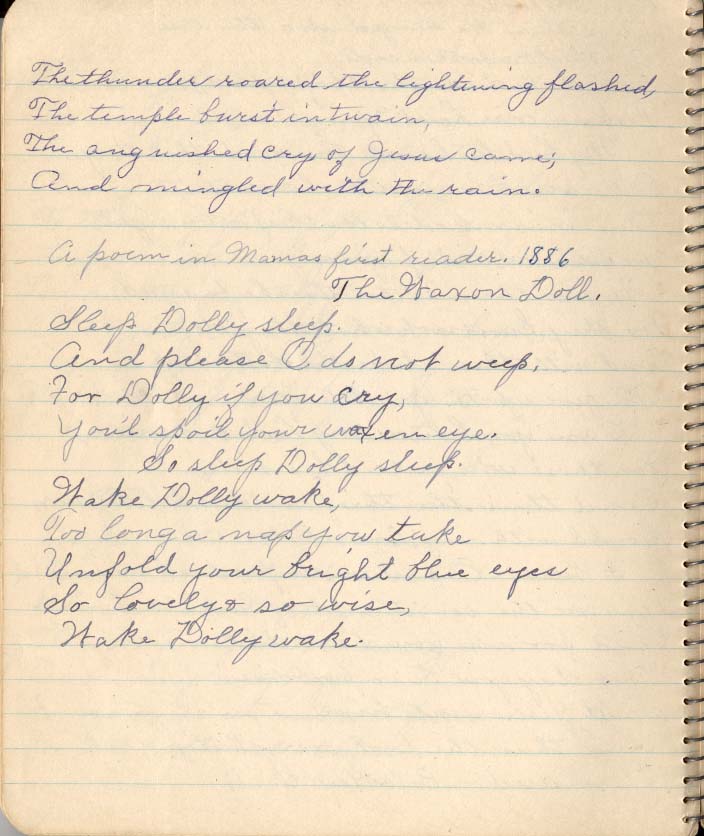 The thunder roared the lightening flashed,
The temple burst in twain,
The anguished cry of Jesus came;
And mingled with the rain.
A poem in Mamas first reader. 1886
The Waxon Doll.
Sleep Dolly sleep.
And please O do not weep.
For Dolly if you cry,
You'l spoil your waxen eye.
So sleep Dolly sleep.
Wake Dolly wake,
Too long a nap you take
Unfold your bright blue eyes
So lovely & so wise,
Wake Dolly wake.